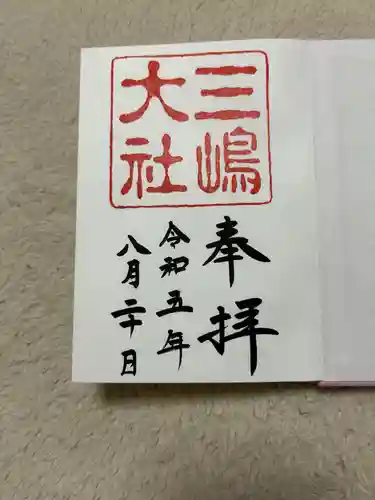 三嶋
大社
奉拝
令和五年
八月二十日